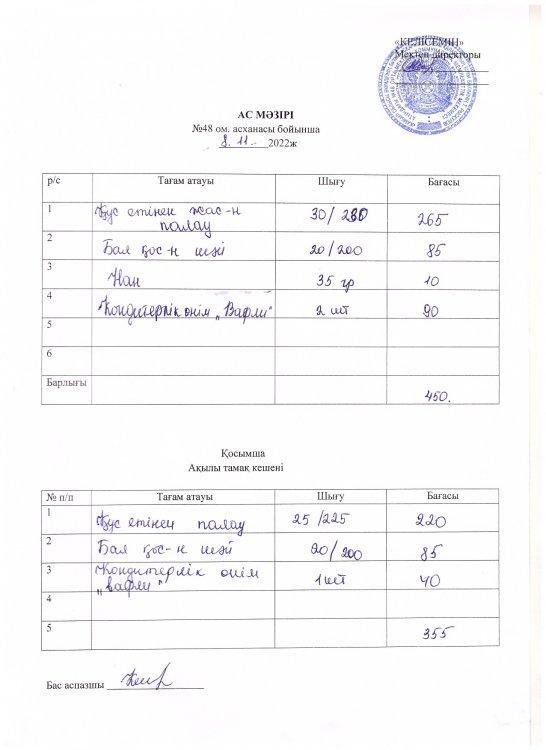 «КЕЛІСЕМІН»
Мектеп директоры
АС МӘЗІРІ
№48 ом. асханасы бойынша
8.11. 2022ж
р/с Тағам атауы Шығу Бағасы
1 Құс етінен жас-н палау 30/280 265
2 Бал қос-н шәй 20/200 85
3 Нан 35 гр 10
4 Кондитерлік өнім „Вафли" 2 шт 90
5
6
Барлығы 450.
Қосымша
Ақылы тамақ кешені
№ п/п Тағам атауы Шығу Бағасы
1 Құс етінен палау 25/225 220
2 Бал қос-н шәй 20/200 85
3 Кондитерлік өнім
„вафли" 1 шт 40
4
5 355
Бас аспазшы